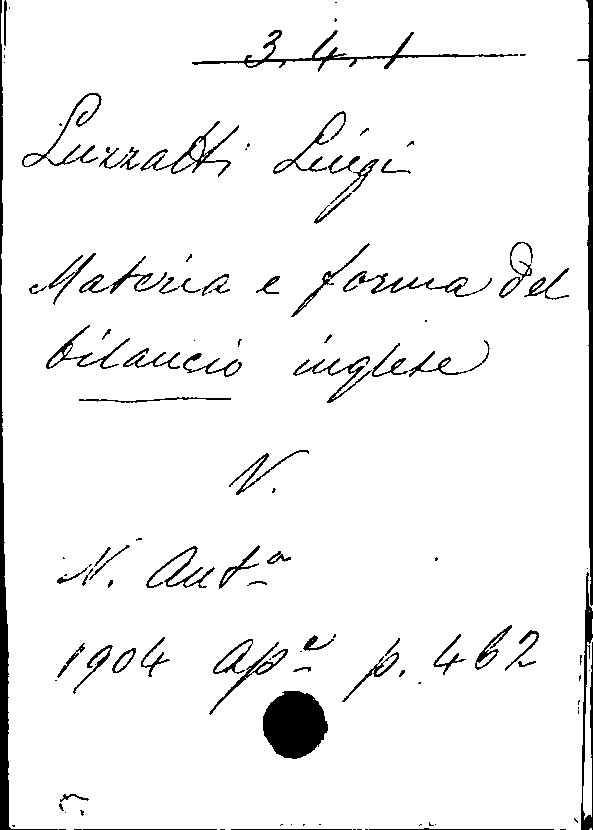 3. 4. 1
Luzzatti Luigi
Materia e forma del
bilancio inglese
V.
N. Antᵃ
1904 Apᵉ p. 462